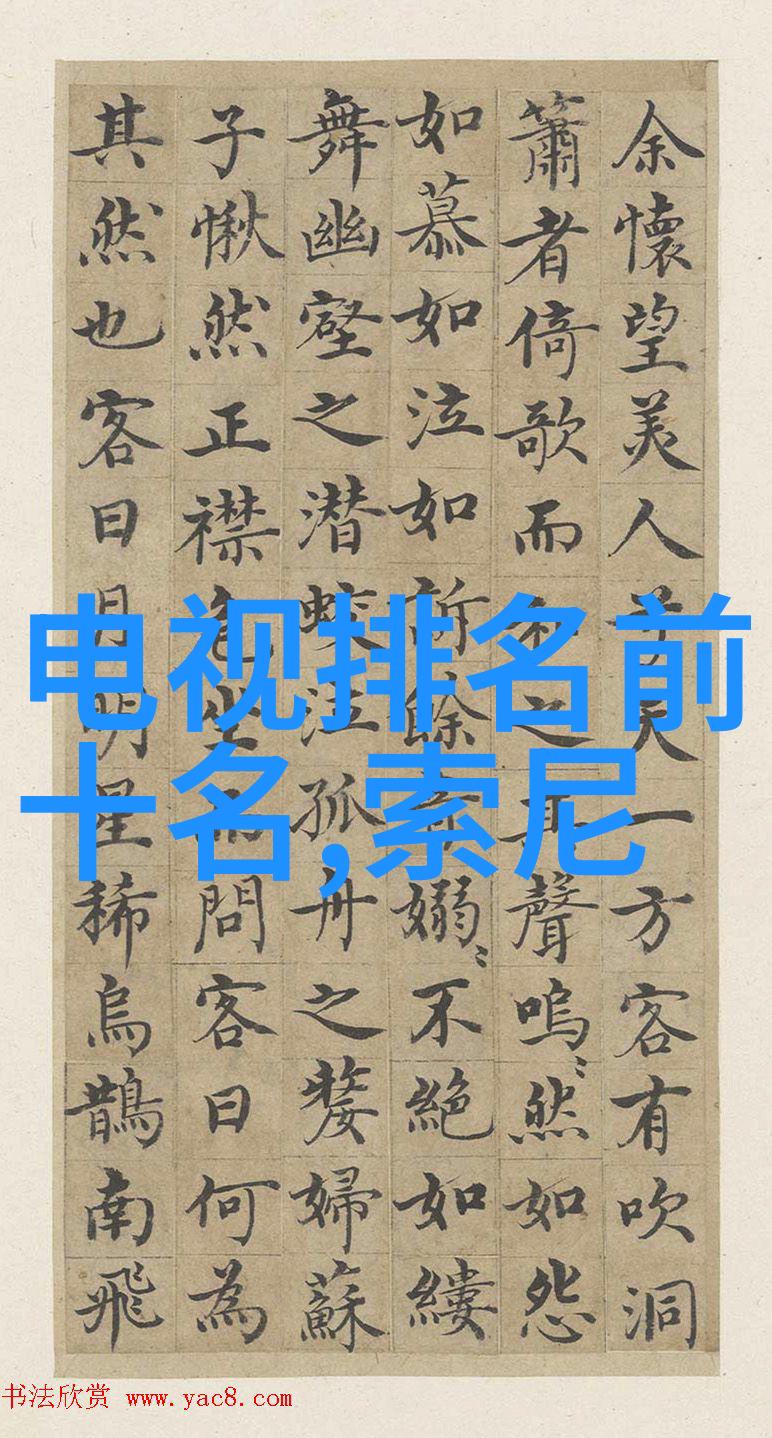 余懷望美人兮天一方客有吹洞
簫者倚歌而和之其聲嗚〻然如怨
如慕如泣如訴餘音嫋〻不絕如縷
舞幽壑之潜蛟泣孤舟之嫠婦蘇
子愀然正襟危坐而問客曰何為
其然也客曰月明星稀烏鵲南飛
电视排名前
十名,索尼
书法欣赏 www.yac8.com